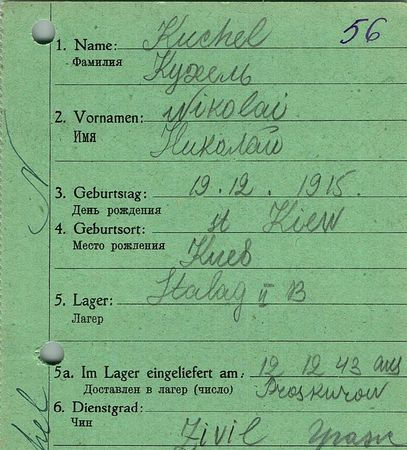 56
1. Name: Kuchel
Фамилия Кухель
2. Vornamen: Nikolai
Имя Николай
3. Geburtstag: 19. 12. 1915.
День рождения
4. Geburtsort: st Kiew
Место рождения Киев
5. Lager: Stalag II B
Лагерь
5a. Im Lager eingeliefert am: 12 12 43 aus
Доставлен в лагерь (число) Proskurow
6. Dienstgrad:
Чин Zivil